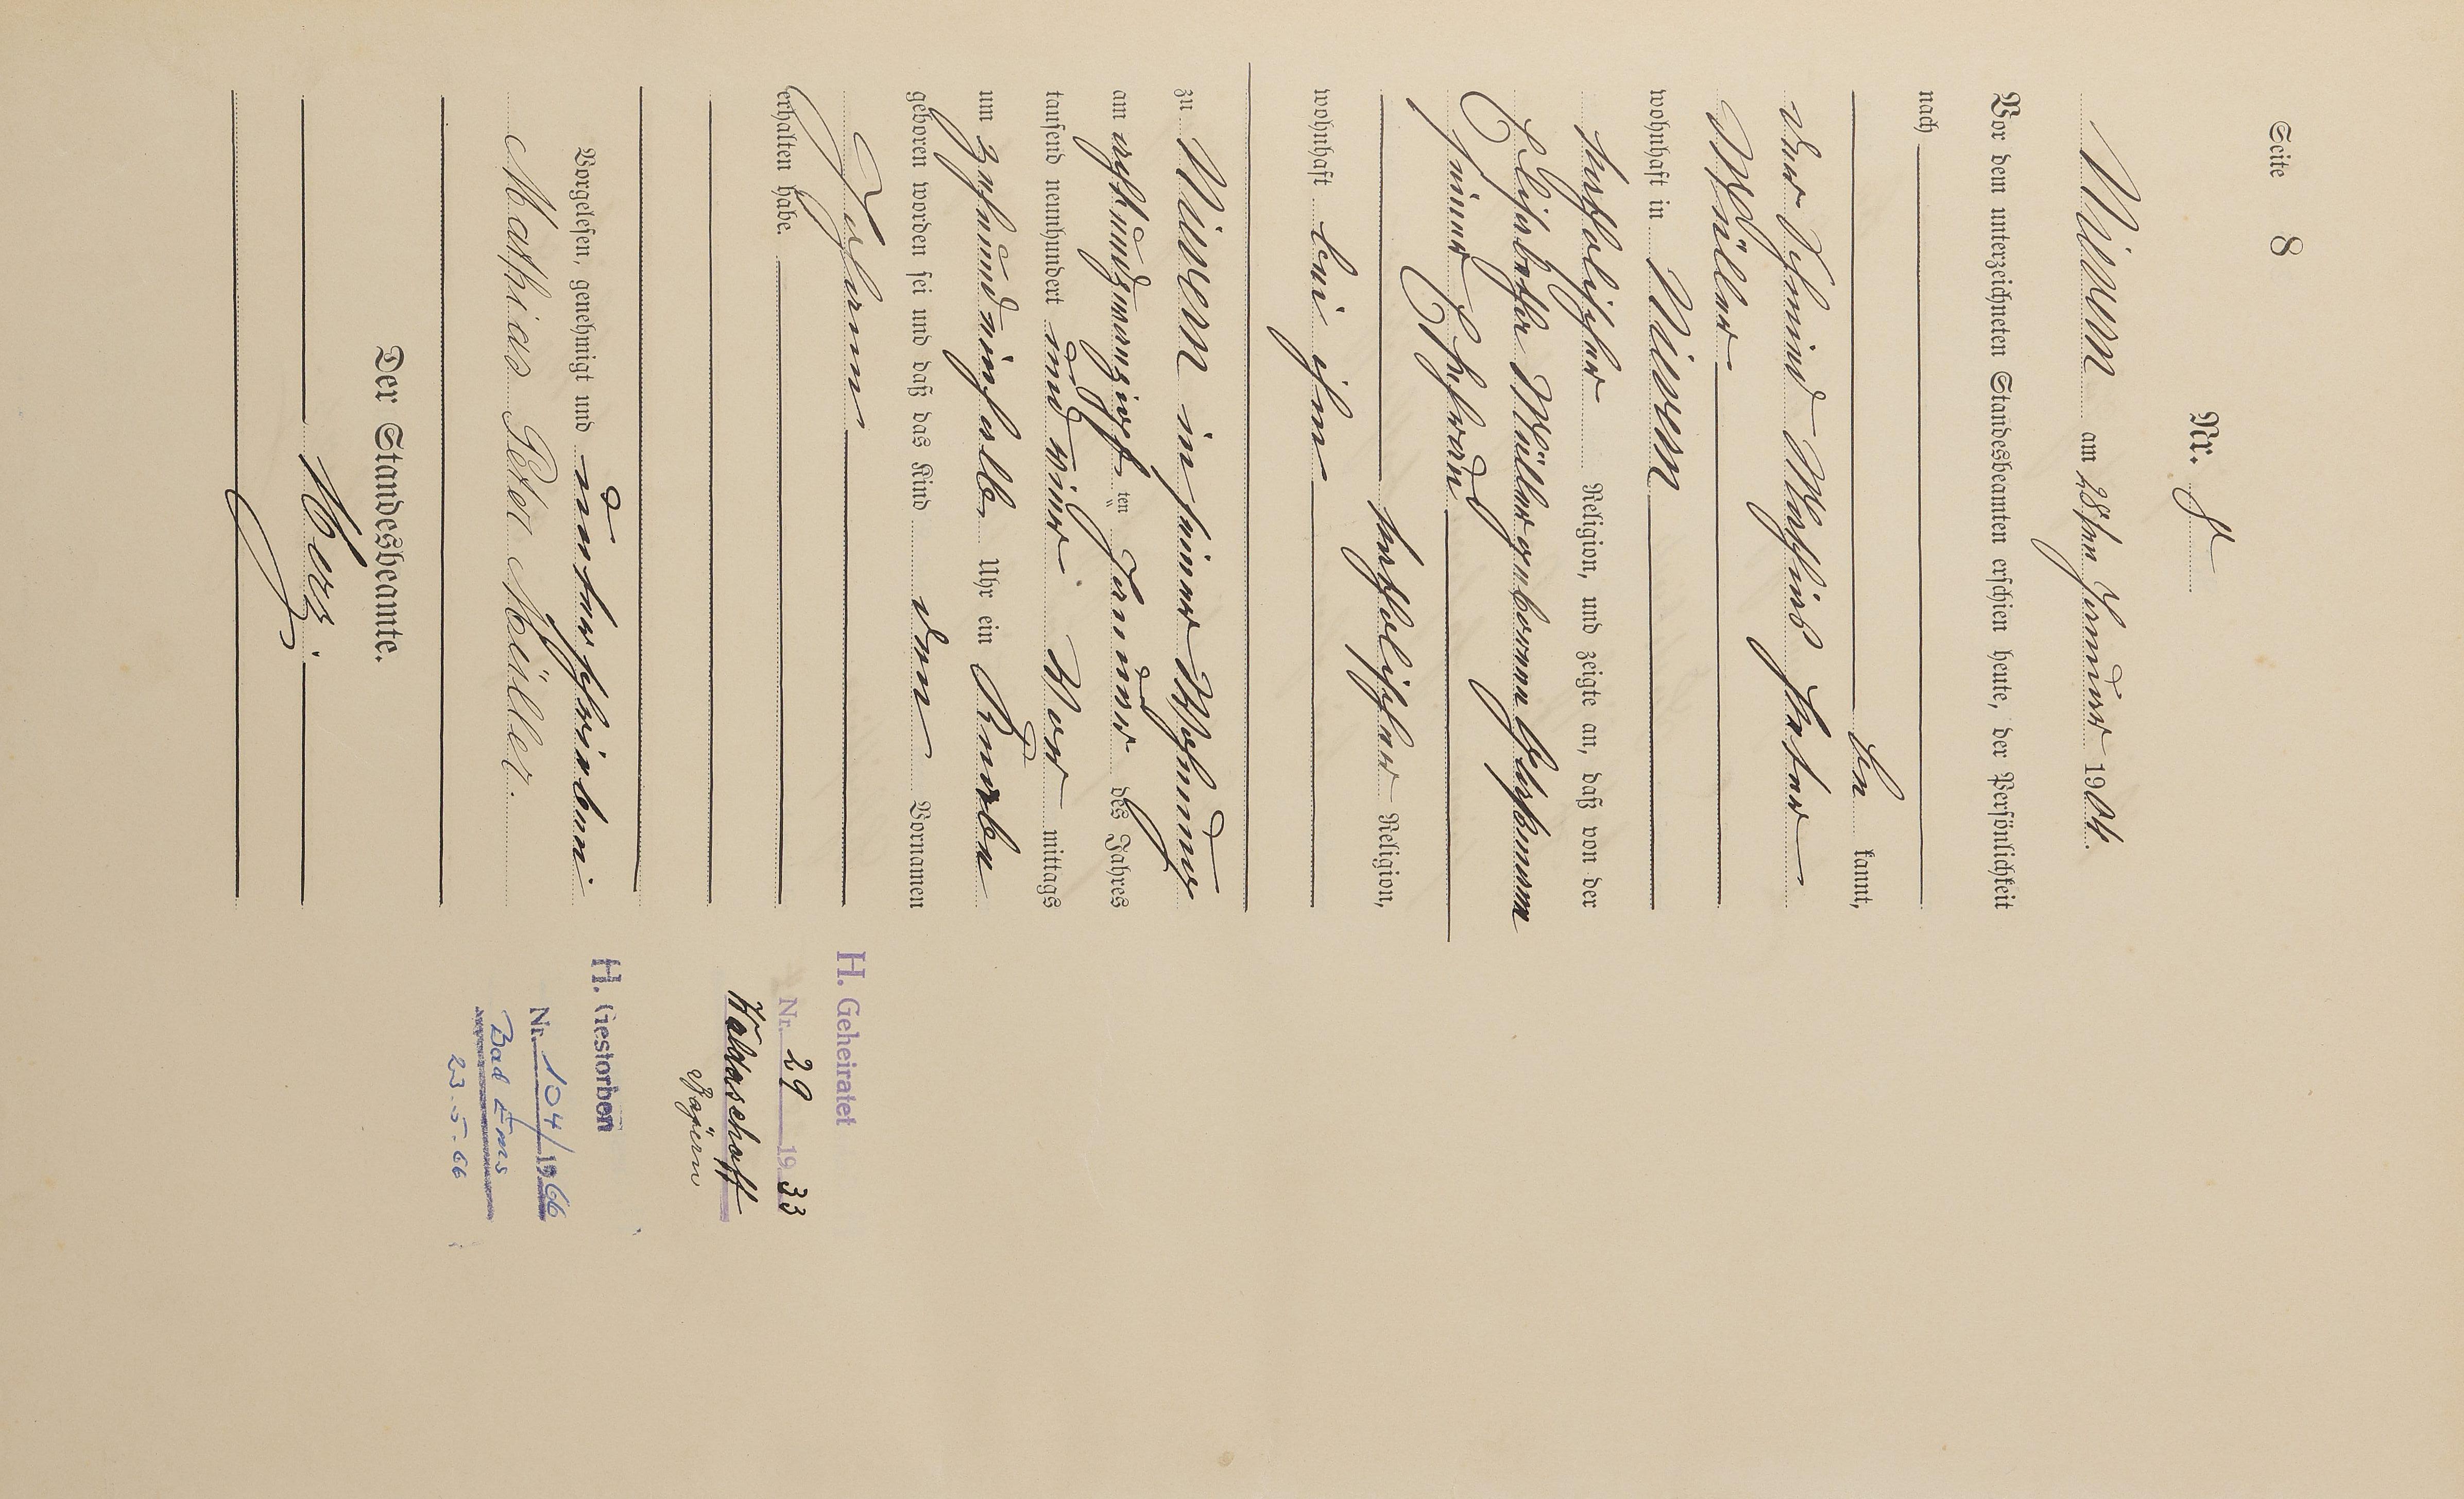 Seite 8
Nr. 8
Nievern am 28ten Januar 1904.
Vor dem unterzeichneten Standesbeamten erschien heute, der Persönlichkeit
nach
be kannt,
der Schmied Mathias Peter
Müller
wohnhaft in Nievern
katholischer Religion, und zeigte an, daß von der
Elisabetha Müller geborenen
seiner Ehefrau
katholischer Religion,
wohnhaft bei ihm
zu Nievern in seiner Wohnung
am achtundzwanzigsten Januar des Jahres
tausend neunhundert und vier Vor mittags
um zehnundeinhalb Uhr ein Knabe
geboren worden sei und daß das Kind den Vornamen
Johann
erhalten habe.
Vorgelesen, genehmigt und unterschrieben
Mathias Peter Müller.
Der Standesbeamte.
H. Geheiratet
Nr. 29 1933
Waldaschaff
Bayern
H. Gestorben
Nr. 104/1966
Bad Ems
23.5.66